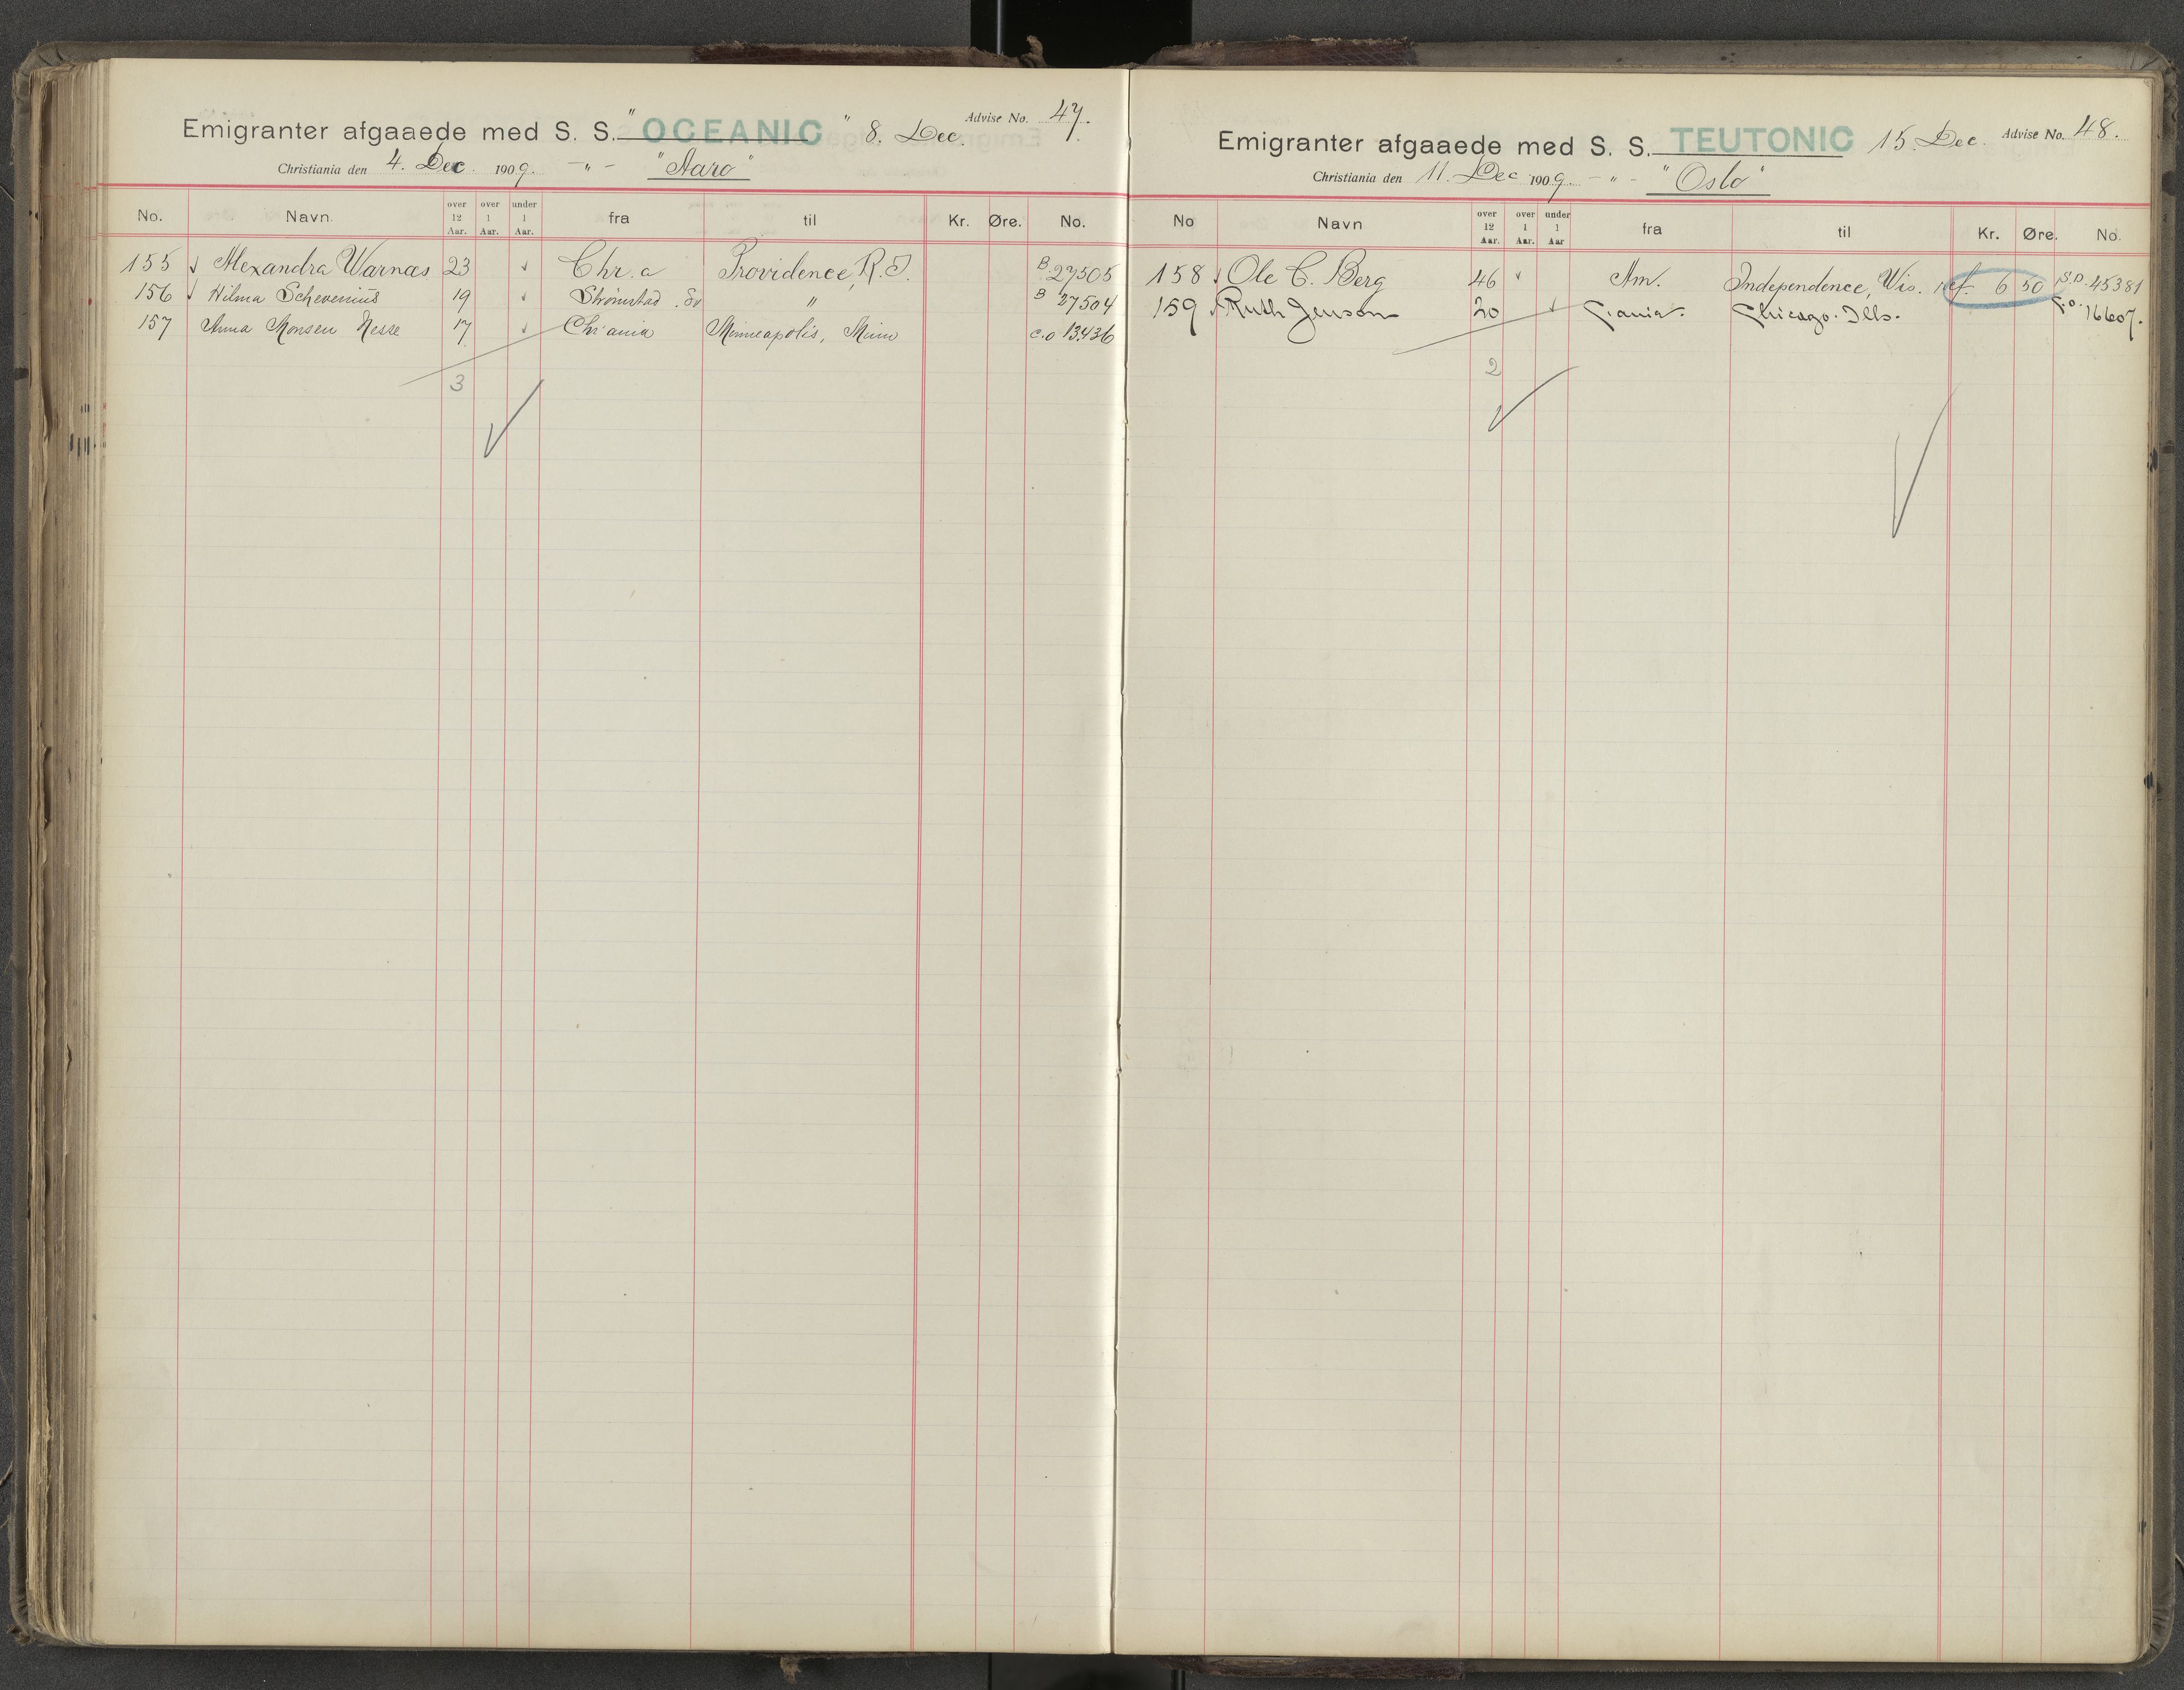 Emigranter afgaaede med S. S. "OCEANIC" 8. Dec. Advise No. 47.
Christiania den 4. Dec. 1909. -"- "Aaro"
No. Navn. over 12 Aar. over 1 Aar. under 1 Aar. fra til Kr. Øre. No.
155 Alexandra Warnæs 23 Chr.a Providence, R.I. B 27505
156 Hilma Schevenius 19 Strømstad. Sv " B 27504
157 Anna Monsen Nesse 17 Chr ania Minneapolis, Minn c.o 13436
3
Emigranter afgaaede med S. S. TEUTONIC 15. Dec. Advise No. 48.
Christiania den 11. Dec 1909. -"- "Oslo"
No Navn over 12 Aar. over 1 Aar. under 1 Aar fra til Kr. Øre. No.
158 Ole C. Berg 46 Am. Independence, Wis. ref. 6 50 S.D. 45381
159 Ruth Jenson 20 C.ania. Chicago. Ills. C.o. 16607.
2